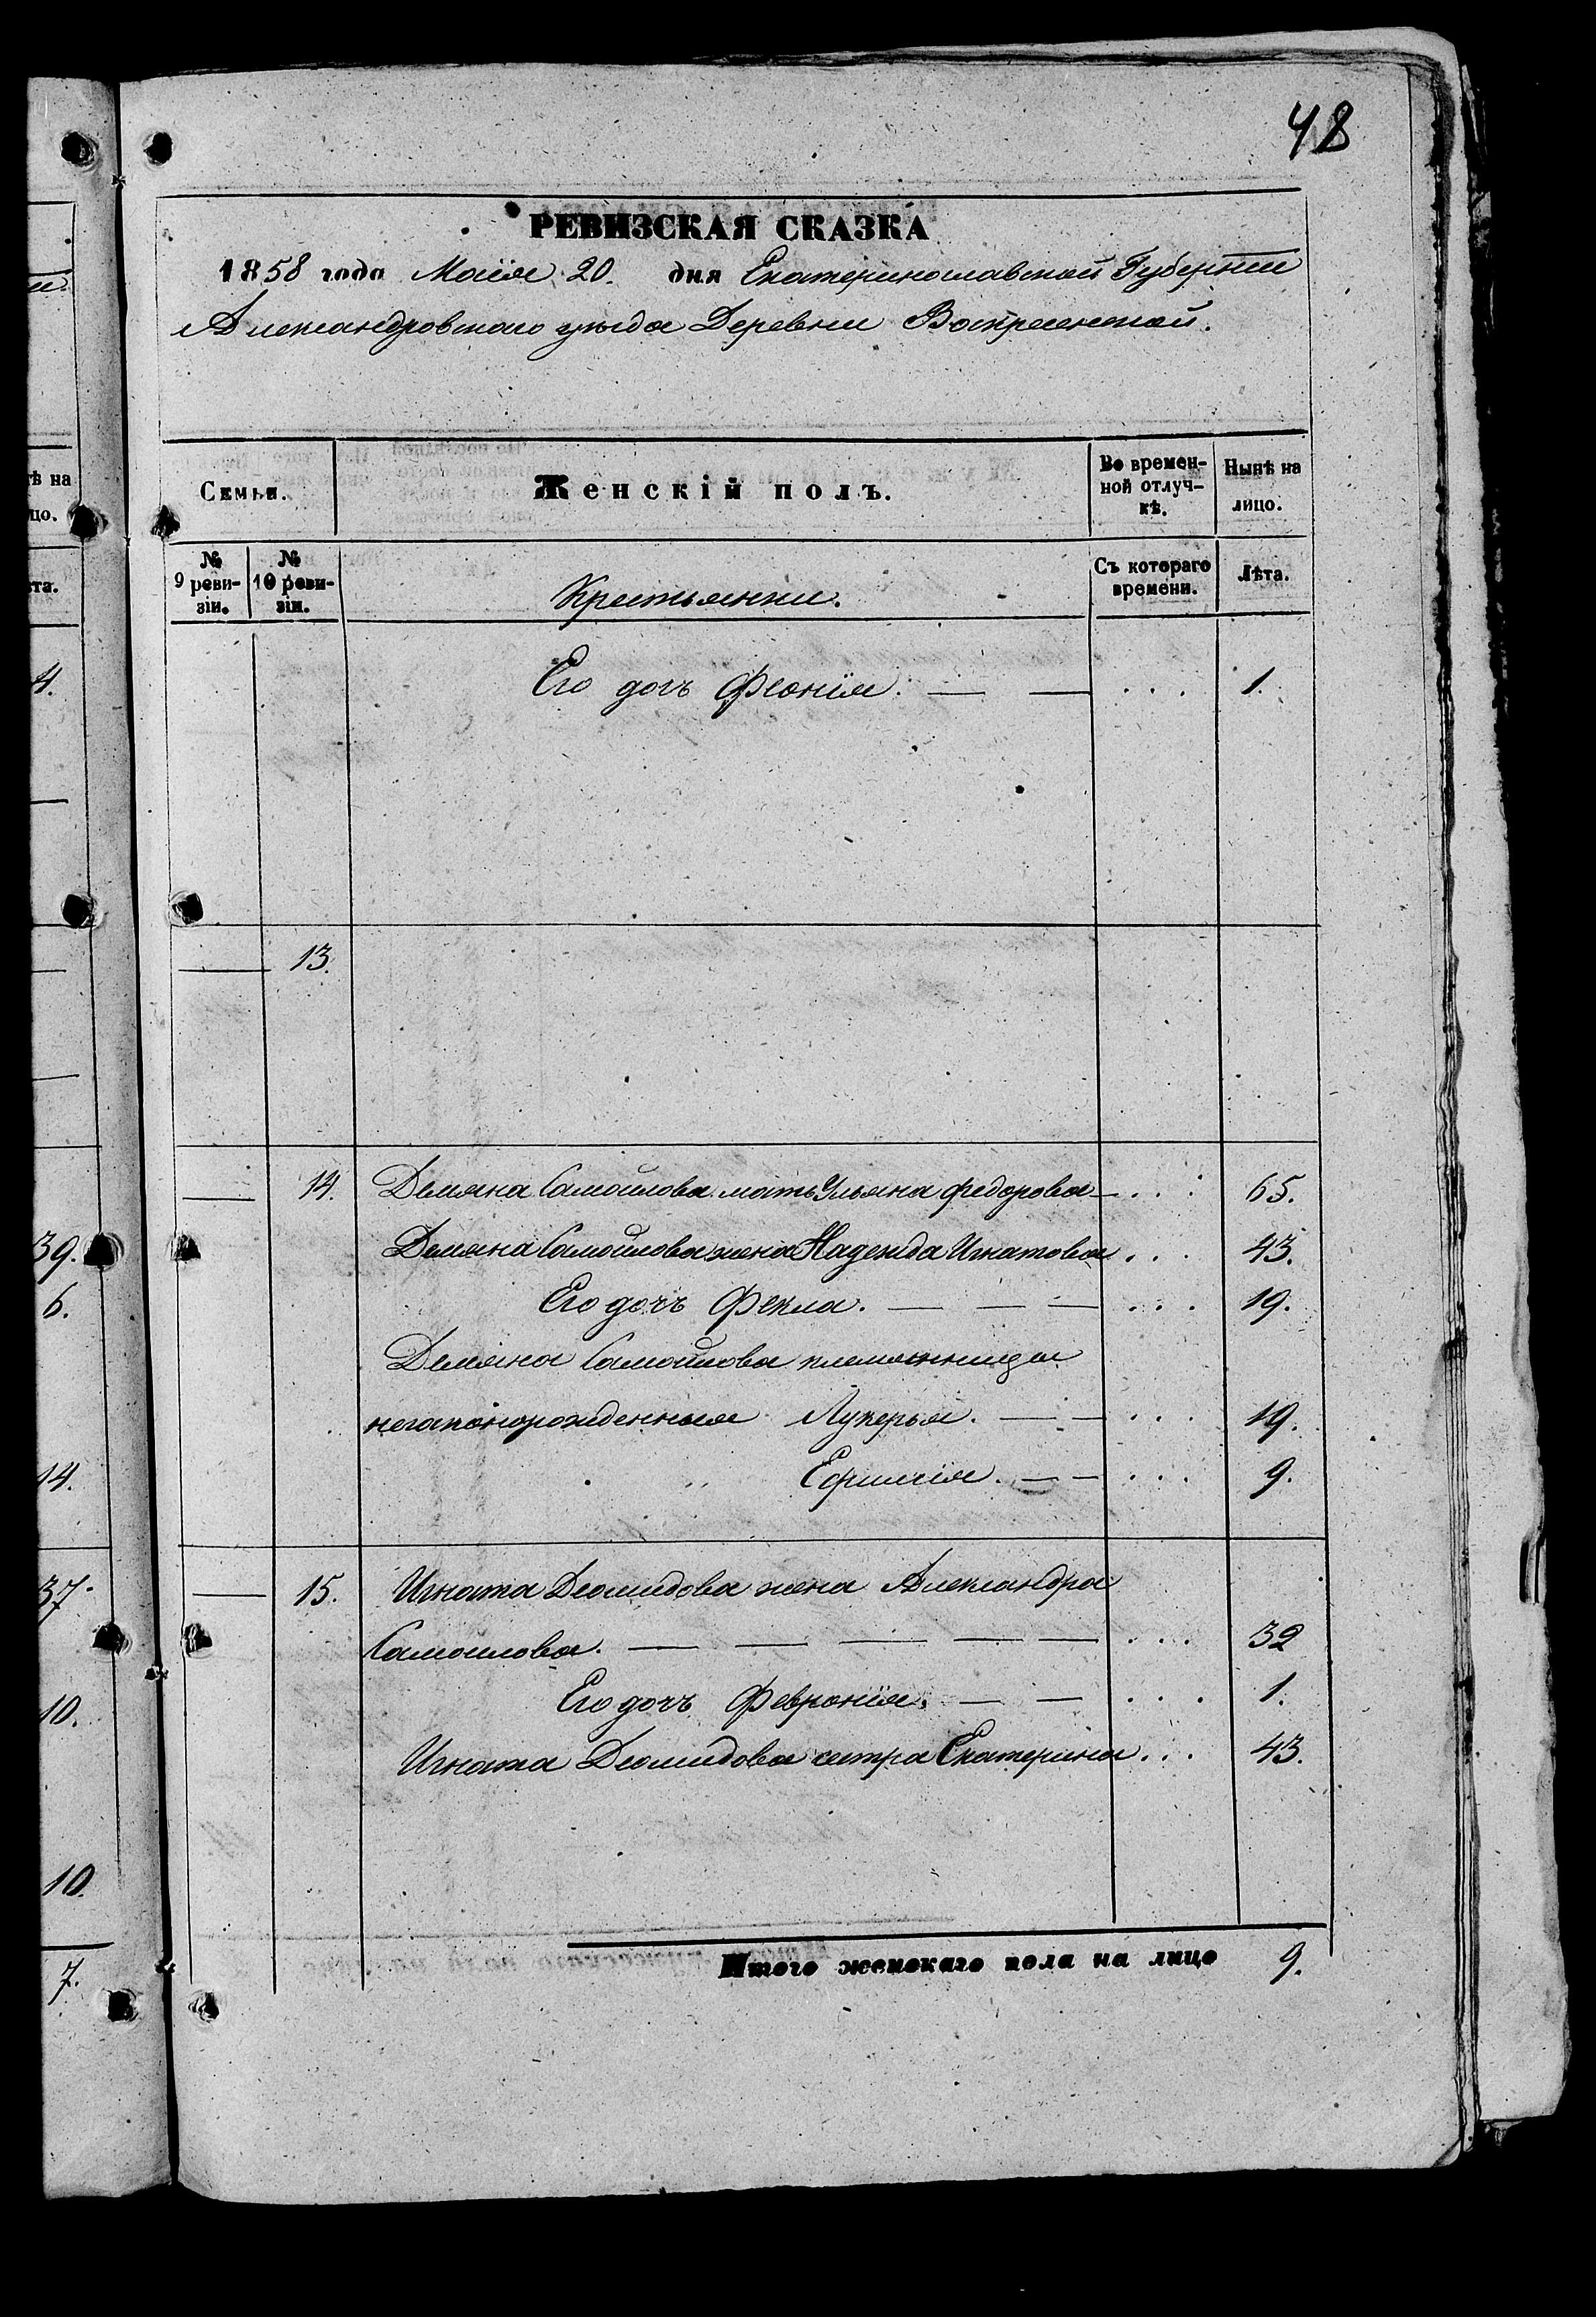 48
РЕВИЗСКАЯ СКАЗКА
1858 года Маїя 20. дня Екатеринославской Губерніи
Александровскаго уѣзда Деревни Воскресенской.
Семьи. Женскій полъ. Во времен-ной отлуч-кѣ. Нынѣ на лицо.
№ 9 реви-зіи. № 10 реви-зіи. Крестьянки. Съ котораго времени. Лѣта.
Его дочь Феонія. — — . . . 1.
— 13.
— 14. Демяна Самойлова мать Ульяна Федорова — . . . 65.
Демяна Самойлова жена Надежда Игнатова . . . 43.
Его дочь Фекла. — — — . . . 19.
Демяна Самойлова племянницы
незаконорожденныя Лукерья. — — . . . 19.
Ефимія. — — . . . 9.
— 15. Игната Деомидова жена Александра
Самоилова. — — — — — . . . 32
Его дочь Февронія. — — . . . 1.
Игната Деомидова сестра Екатерина . . . 43.
Итого женскаго пола на лицо 9.
4.
39.
6.
14.
37.
10.
10.
7.